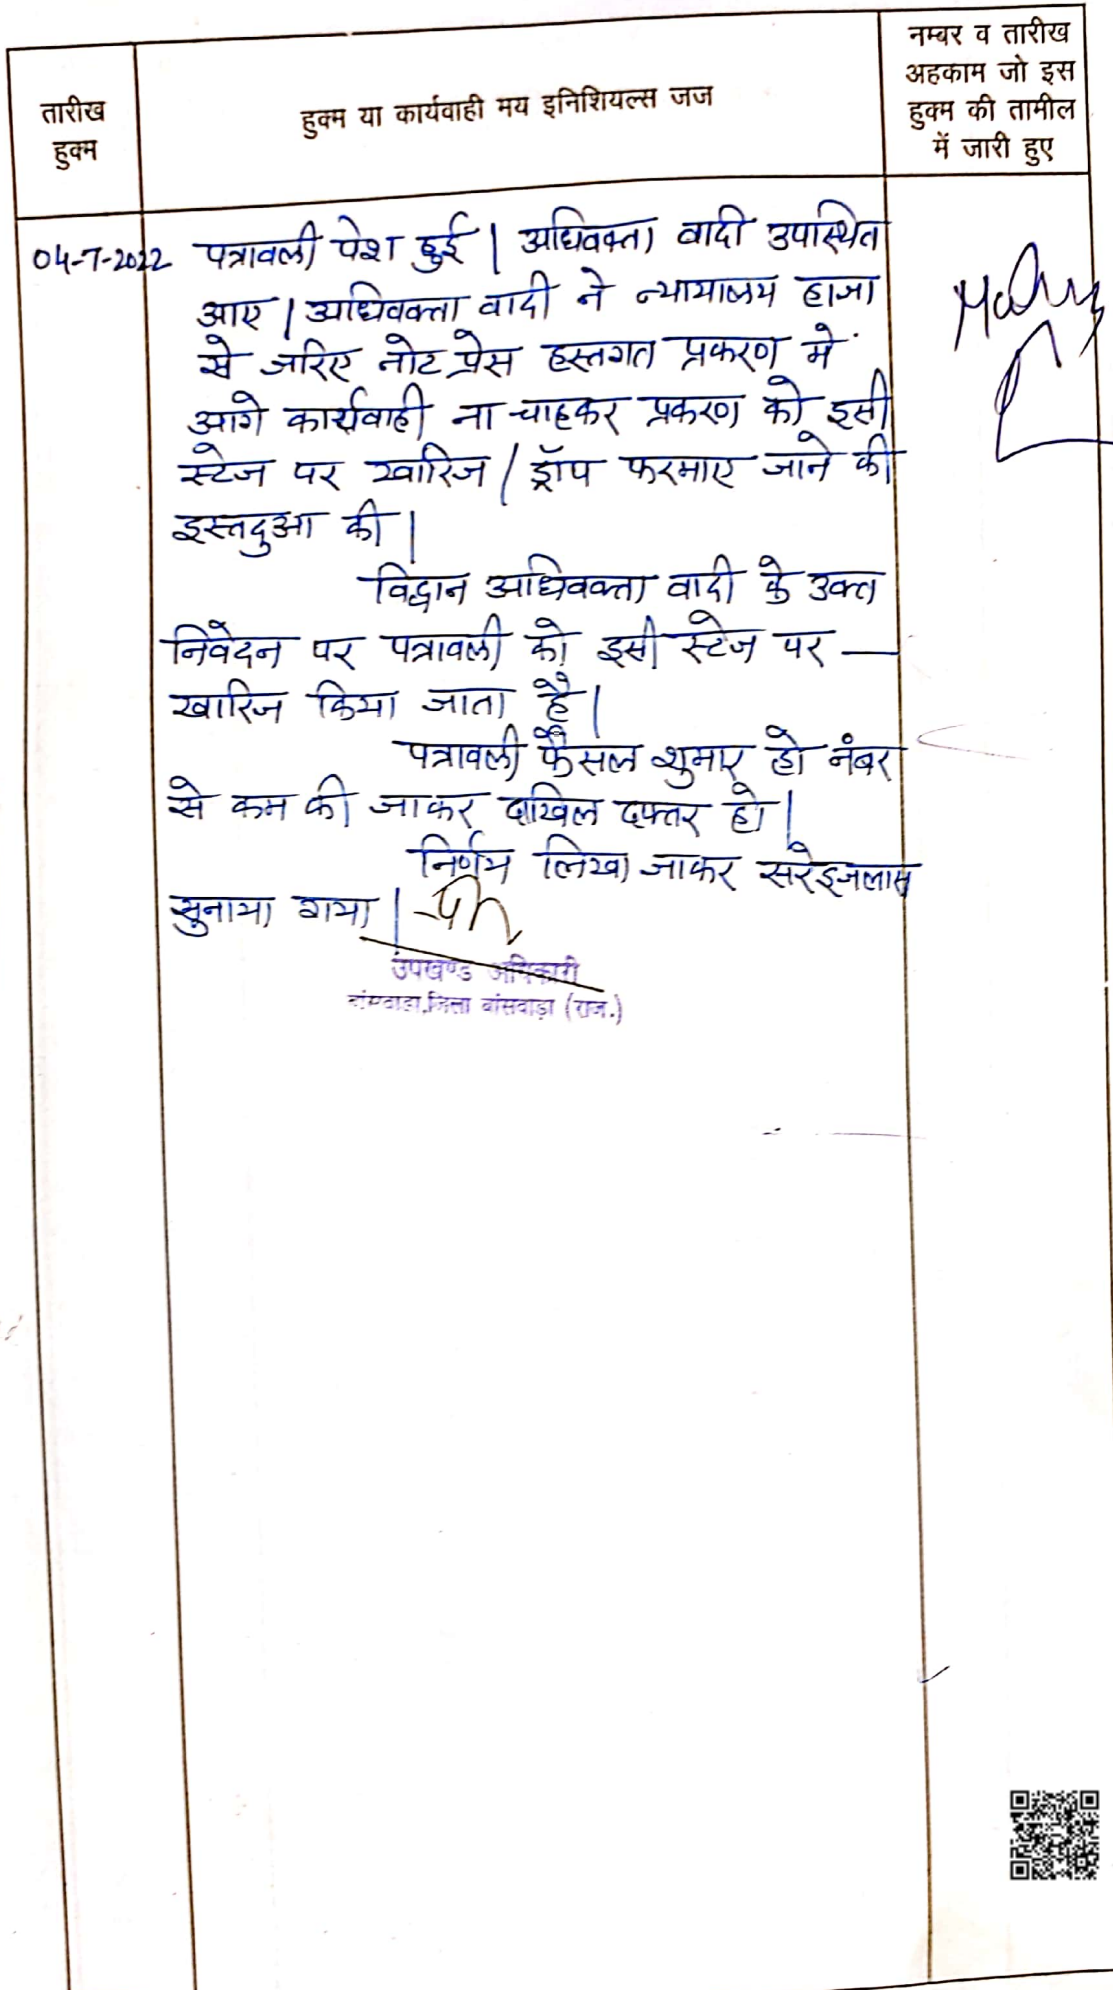 तारीख
हुक्म
हुक्म या कार्यवाही मय इनिशियल्स जज
नम्बर व तारीख
अहकाम जो इस
हुक्म की तामील
में जारी हुए
04-7-2022 पत्रावली पेश हुई | अधिवक्ता वादी उपस्थित
आए | अधिवक्ता वादी ने न्यायालय हाजा
से जरिए नोट प्रेस हस्तगत प्रकरण में
आगे कार्यवाही ना चाहकर प्रकरण को इसी
स्टेज पर खारिज / ड्रॉप फरमाए जाने की
इस्तदुआ की |
विद्वान अधिवक्ता वादी के उक्त
निवेदन पर पत्रावली को इसी स्टेज पर —
खारिज किया जाता है |
पत्रावली फैसल शुमार हो नंबर
से कम की जाकर दाखिल दफ्तर हो |
निर्णय लिखा जाकर सरेइजलास
सुनाया गया |
उपखण्ड अधिकारी
बांसवाडा,जिला बांसवाड़ा (राज.)